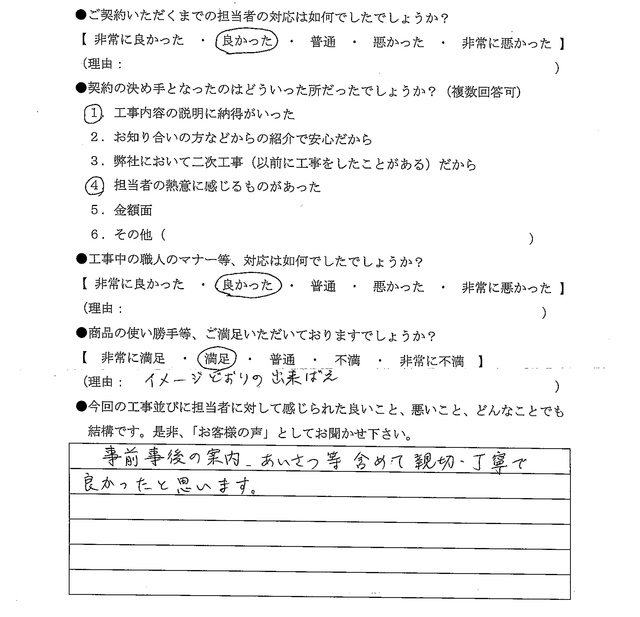 ●ご契約いただくまでの担当者の対応は如何でしたでしょうか？
【 非常に良かった ・ 良かった ・ 普通 ・ 悪かった ・ 非常に悪かった 】
（理由： ）
●契約の決め手となったのはどういった所だったでしょうか？（複数回答可）
1．工事内容の説明に納得がいった
2．お知り合いの方などからの紹介で安心だから
3．弊社において二次工事（以前に工事をしたことがある）だから
4．担当者の熱意に感じるものがあった
5．金額面
6．その他（ ）
●工事中の職人のマナー等、対応は如何でしたでしょうか？
【 非常に良かった ・ 良かった ・ 普通 ・ 悪かった ・ 非常に悪かった 】
（理由： ）
●商品の使い勝手等、ご満足いただいておりますでしょうか？
【 非常に満足 ・ 満足 ・ 普通 ・ 不満 ・ 非常に不満 】
（理由： イメージどおりの出来ばえ ）
●今回の工事並びに担当者に対して感じられた良いこと、悪いこと、どんなことでも
結構です。是非、「お客様の声」としてお聞かせ下さい。
事前事後の案内、あいさつ等含めて親切・丁寧で
良かったと思います。